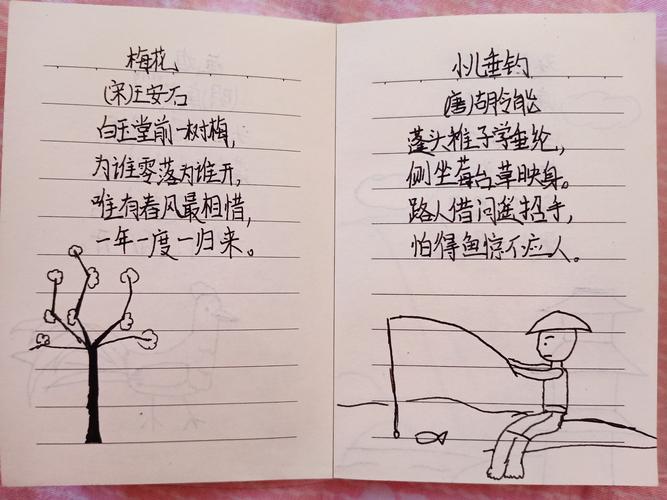 梅花
(宋)王安石
白玉堂前一树梅,
为谁零落为谁开,
唯有春风最相惜,
一年一度一归来。
小儿垂钓
(唐)胡令能
蓬头稚子学垂纶,
侧坐莓台草映身。
路人借问遥招手,
怕得鱼惊不应人。